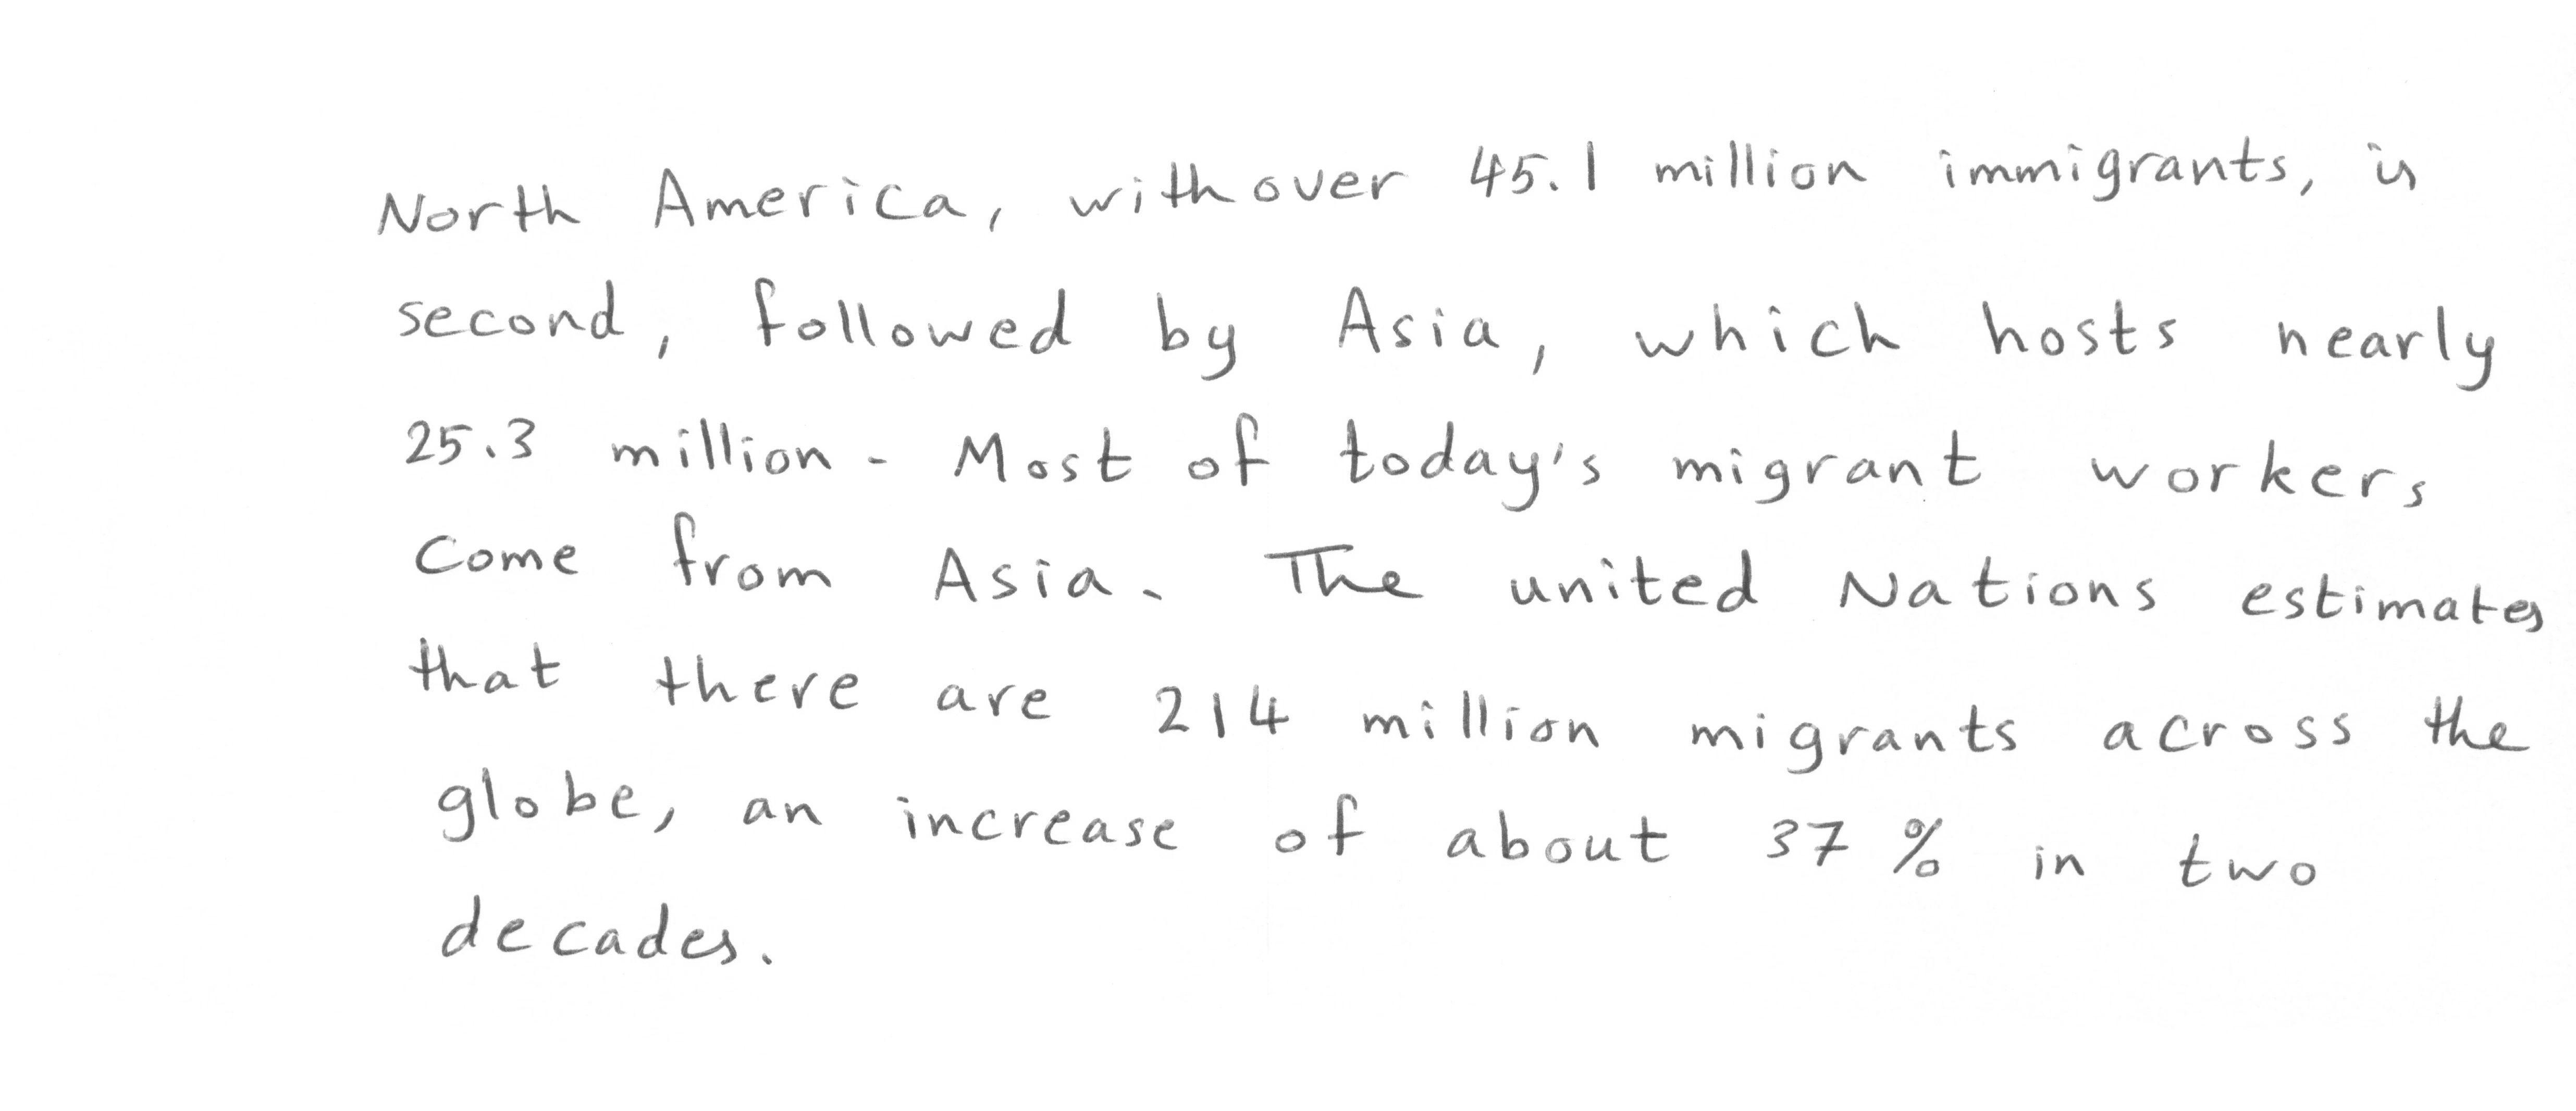 North America, with over 45.1 million immigrants, is
second, followed by Asia, which hosts nearly
25.3 million. Most of today's migrant workers
come from Asia. The united Nations estimates
that there are 214 million migrants across the
globe, an increase of about 37 % in two
decades.